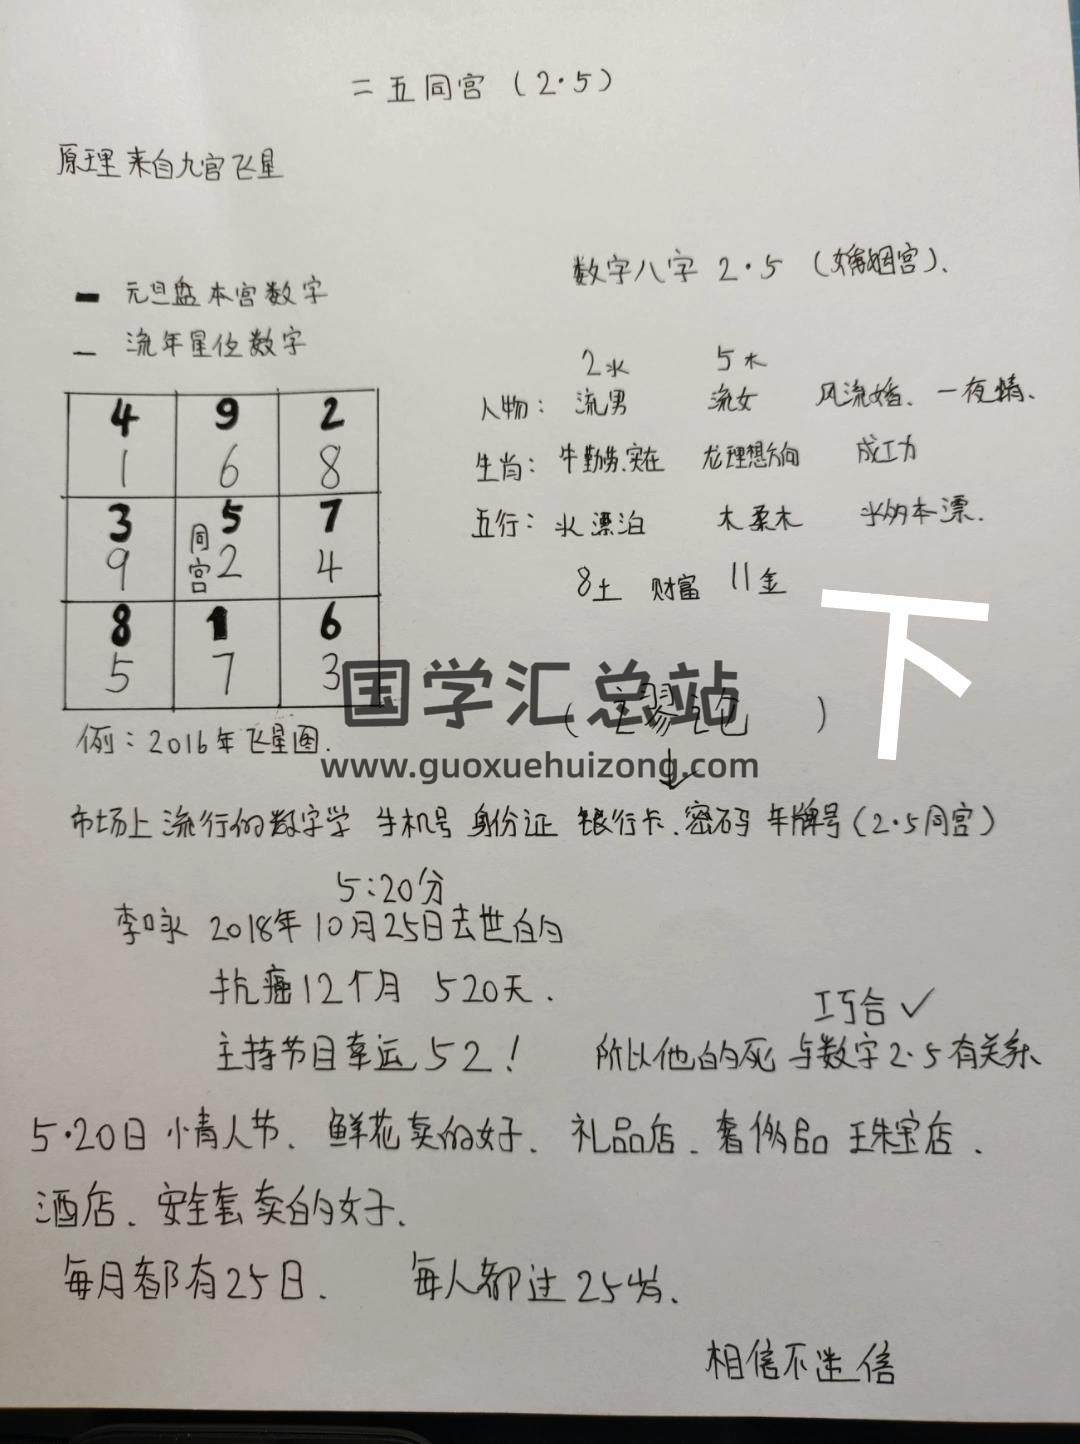 二五同宫（2·5）
原理来自九宫飞星
元旦盘本宫数字
流年星位数字
4 9 2
1 6 8
3 5 7
9 同宫 2 4
8 1 6
5 7 3
例：2016年飞星图.
数字八字 2·5 （婚姻宫）.
2水 5木
人物： 流男 流女 风流婚、一夜情、
生肖： 牛勤劳、实在 龙理想方向 成功
五行： 水漂泊 木柔木 水的木漂.
8土 财富 11金
下
国学汇总站
www.guoxuehuizong.com
市场上流行的数字学 手机号 身份证 银行卡、密码 车牌号（2·5同宫）
5:20分
李咏 2018年10月25日去世的
抗癌12个月 520天.
主持节目幸运52！
巧合✓
所以他的死与数字2·5有关系、
5·20日 情人节、鲜花卖的好、礼品店、奢侈品 珠宝店、
酒店、安全套卖的好、
每月都有25日. 每人都过25岁、
相信不迷信